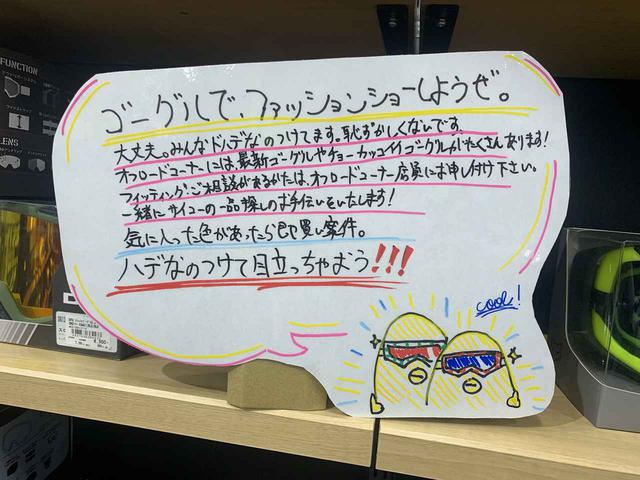 FUNCTION
LENS
ゴーグルで、ファッションショーしようぜ。
大丈夫。みんなドハデなのつけてます。恥ずかしくないです。
オフロードコーナーには、最新ゴーグルやチョーカッコイイゴーグルがたくさんあります!
フィッティング・ご相談があるかたは、オフロードコーナー店員にお申し付け下さい。
一緒にサイコーの一品探しのお手伝いをいたします!
気に入った色があったら即買い案件。
ハデなのつけて目立っちゃおう!!!
cool!